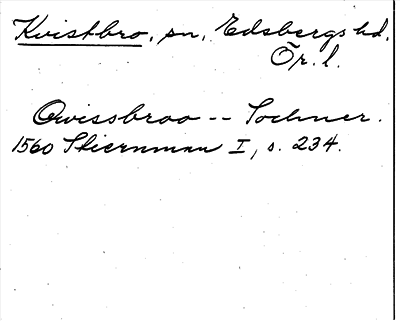 Kvistbro, sn, Edsbergs hd.
Ör. l.
Qwissbroo -- Sochner.
1560 Stiernman I, s. 234.